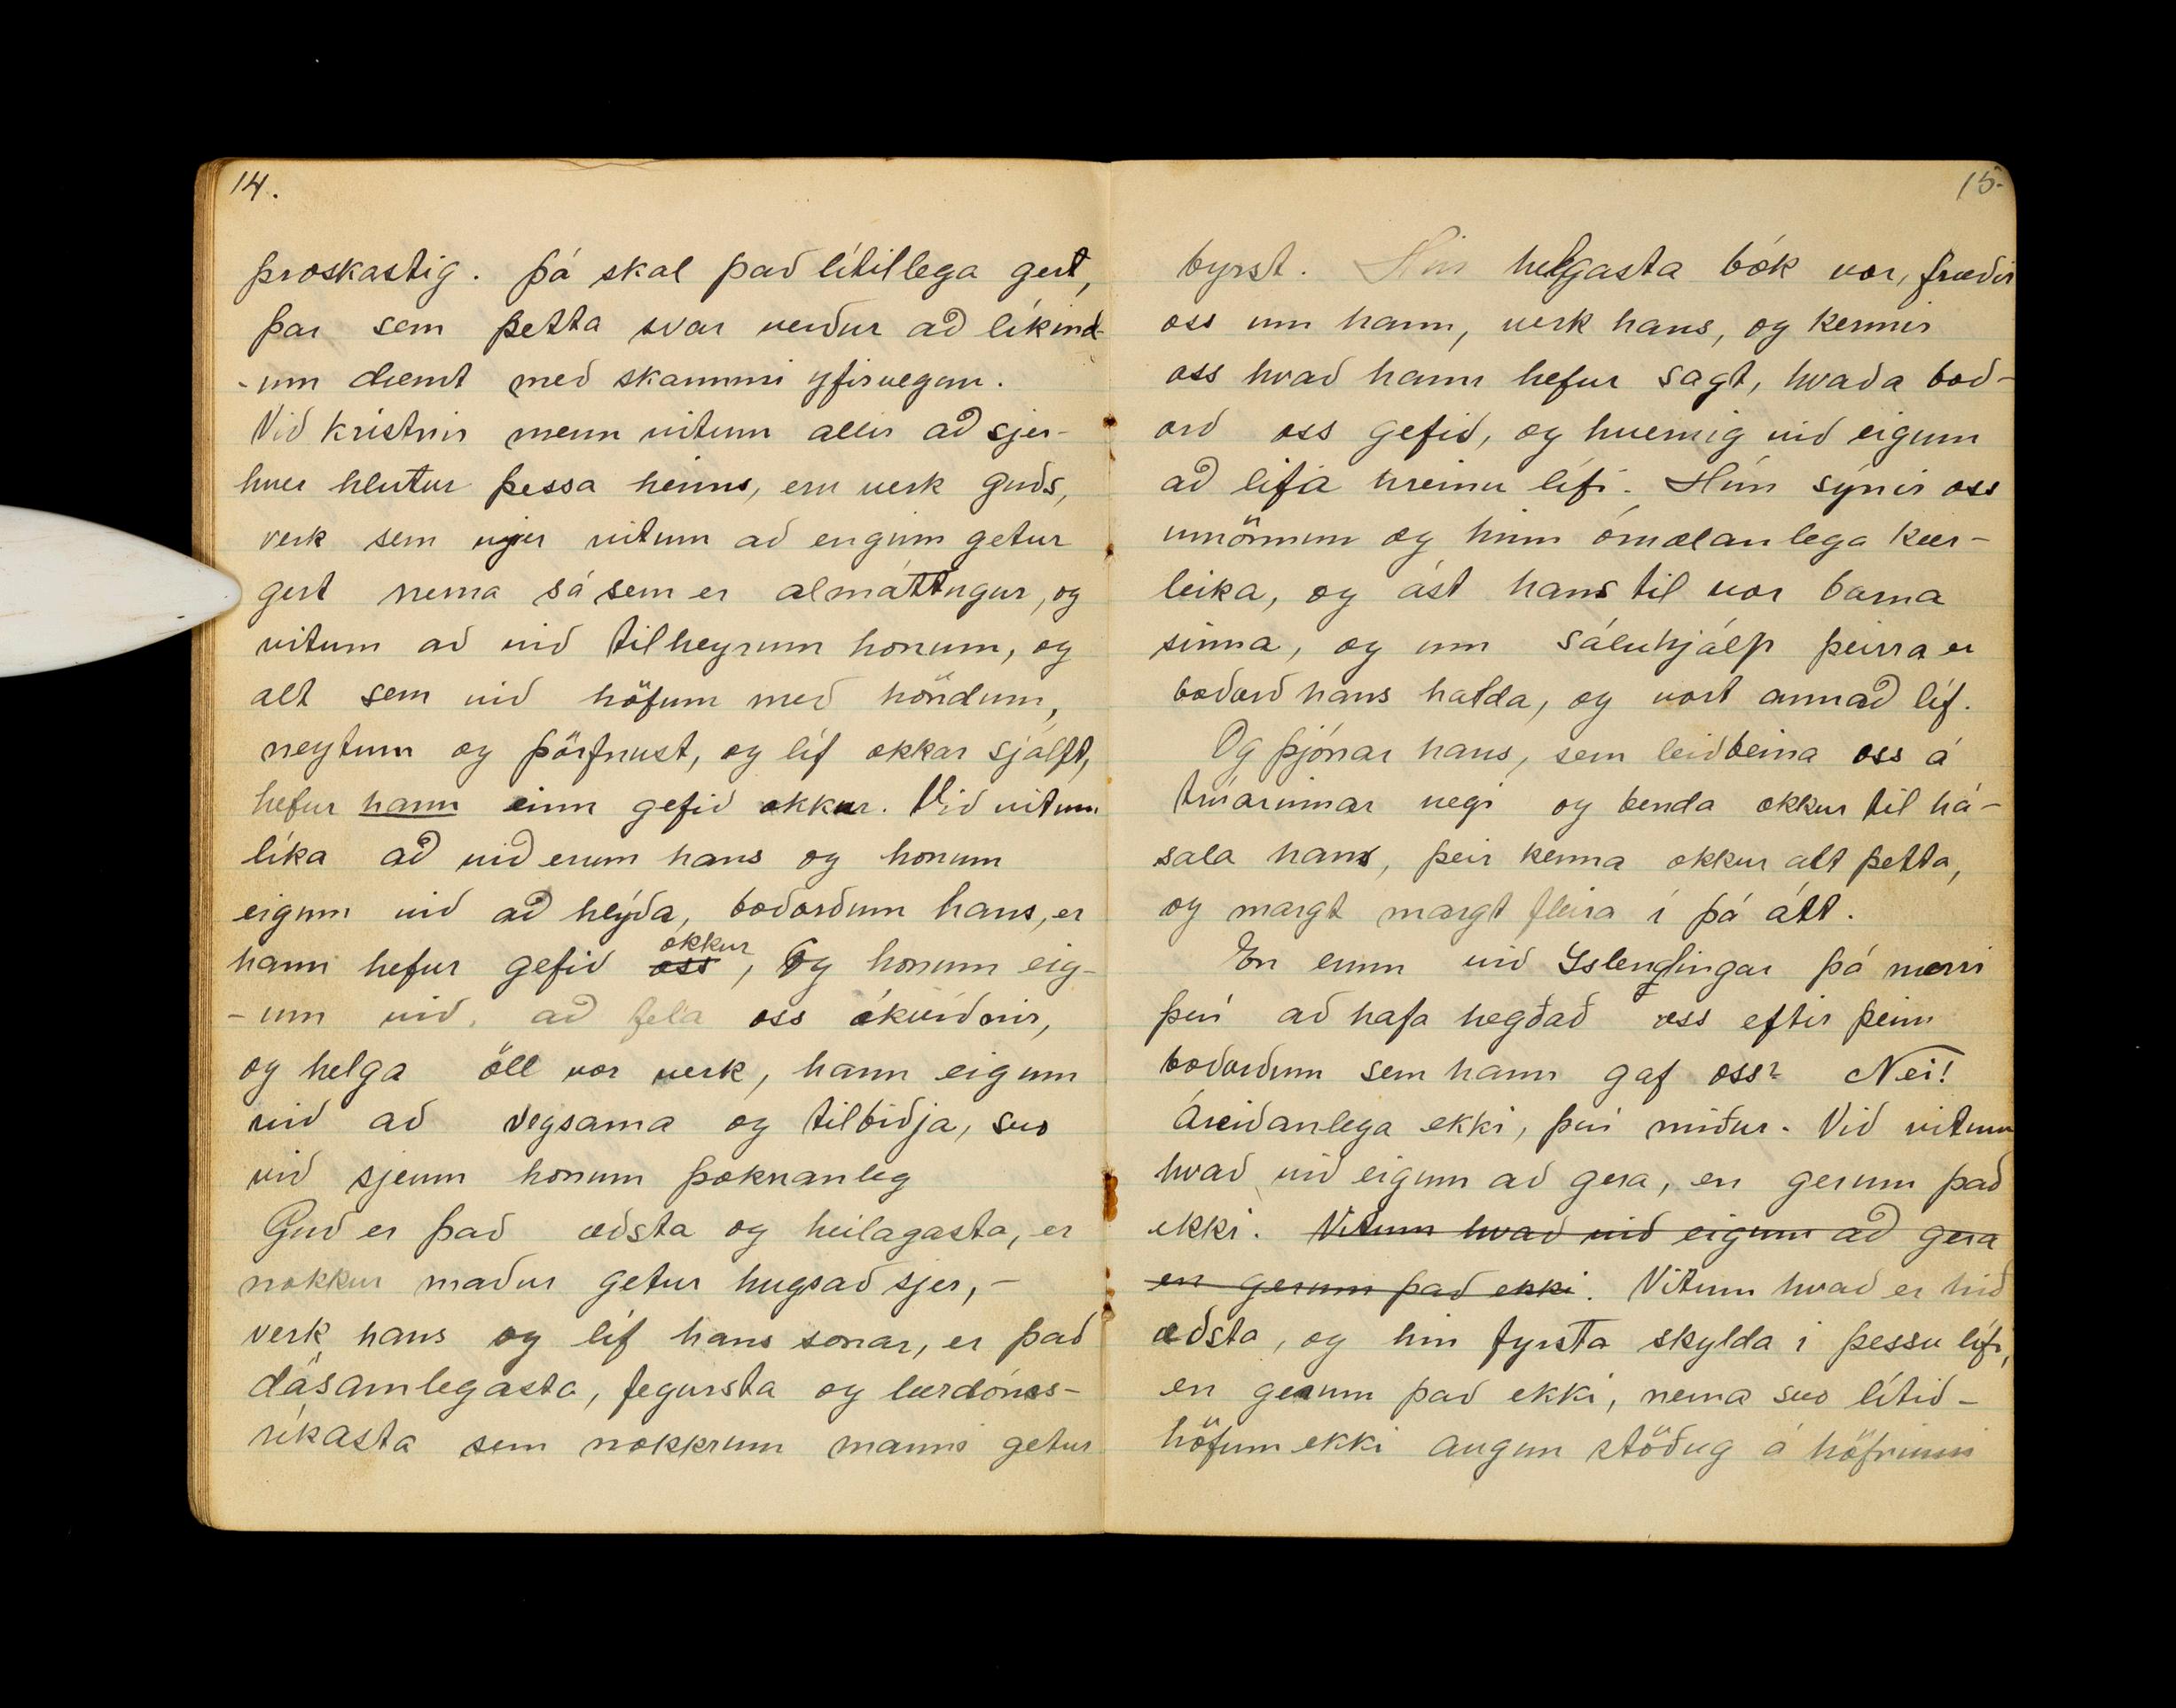 14.
þroskastig. þá skal það lítillega gert,
þar sem þetta svar verður að líkind-
-um dæmt með skammri yfirvegun.
Við kristnir menn vitum allir að sjer-
hver hlutur þessa heims, eru verk guðs,
verk sem vjer vitum að enginn getur
gert nema sá sem er almáttugur, og
vitum að við tilheyrum honum, og
alt sem við höfum með höndum,
neytum og þörfnust, og líf okkar sjálft,
hefur hann einn gefið okkur. Við vitum
líka að við erum hans og honum
eigum við að hlýða, boðorðum hans, er
hann hefur gefið oss okkur, Og honum eig-
-um við, að fela oss ókvíðnir,
og helga öll vor verk, hann eigum
við að vegsama og tilbiðja, svo
við sjeum honum þoknanleg
Guð er það æðsta og heilagasta, er
nokkur maður getur hugsað sjer, -
verk hans og líf hans sonar, er það
dásamlegasta, fegursta og lærdóms-
ríkasta sem nokkrum manni getur
15.
byrst. Hin helgasta bók vor, fræðir
oss um hann, verk hans, og kennir
oss hvað hann hefur sagt, hvaða boð-
orð oss gefið, og hvernig við eigum
að lifa hreinu lífi. Hún sýnir oss
umönnun og hinn ómælanlega kær-
leika, og ást hans til vor barna
sinna, og um sáluhjálp þeirra er
boðorð hans halda, og vort annað líf.
Og þjónar hans, sem leiðbeina oss á
trúarinnar vegi og benda okkur til há-
sala hans, þeir kenna okkur alt þetta,
og margt margt fleira í þá átt.
En erum við Íslendingar þá nærri
því að hafa hegðað oss eftir þeim
boðorðum sem hann gaf oss? Nei!
Áreiðanlega ekki, því miður. Við vitum
hvað við eigum að gera, en gerum það
ekki. Vitum hvað við eigum að gera
en gerum það ekki. Vitum hvað er hið
æðsta, og hin fyrsta skylda í þessu lífi,
en gerum það ekki, nema svo lítið -
höfum ekki augun stöðug á höfninni